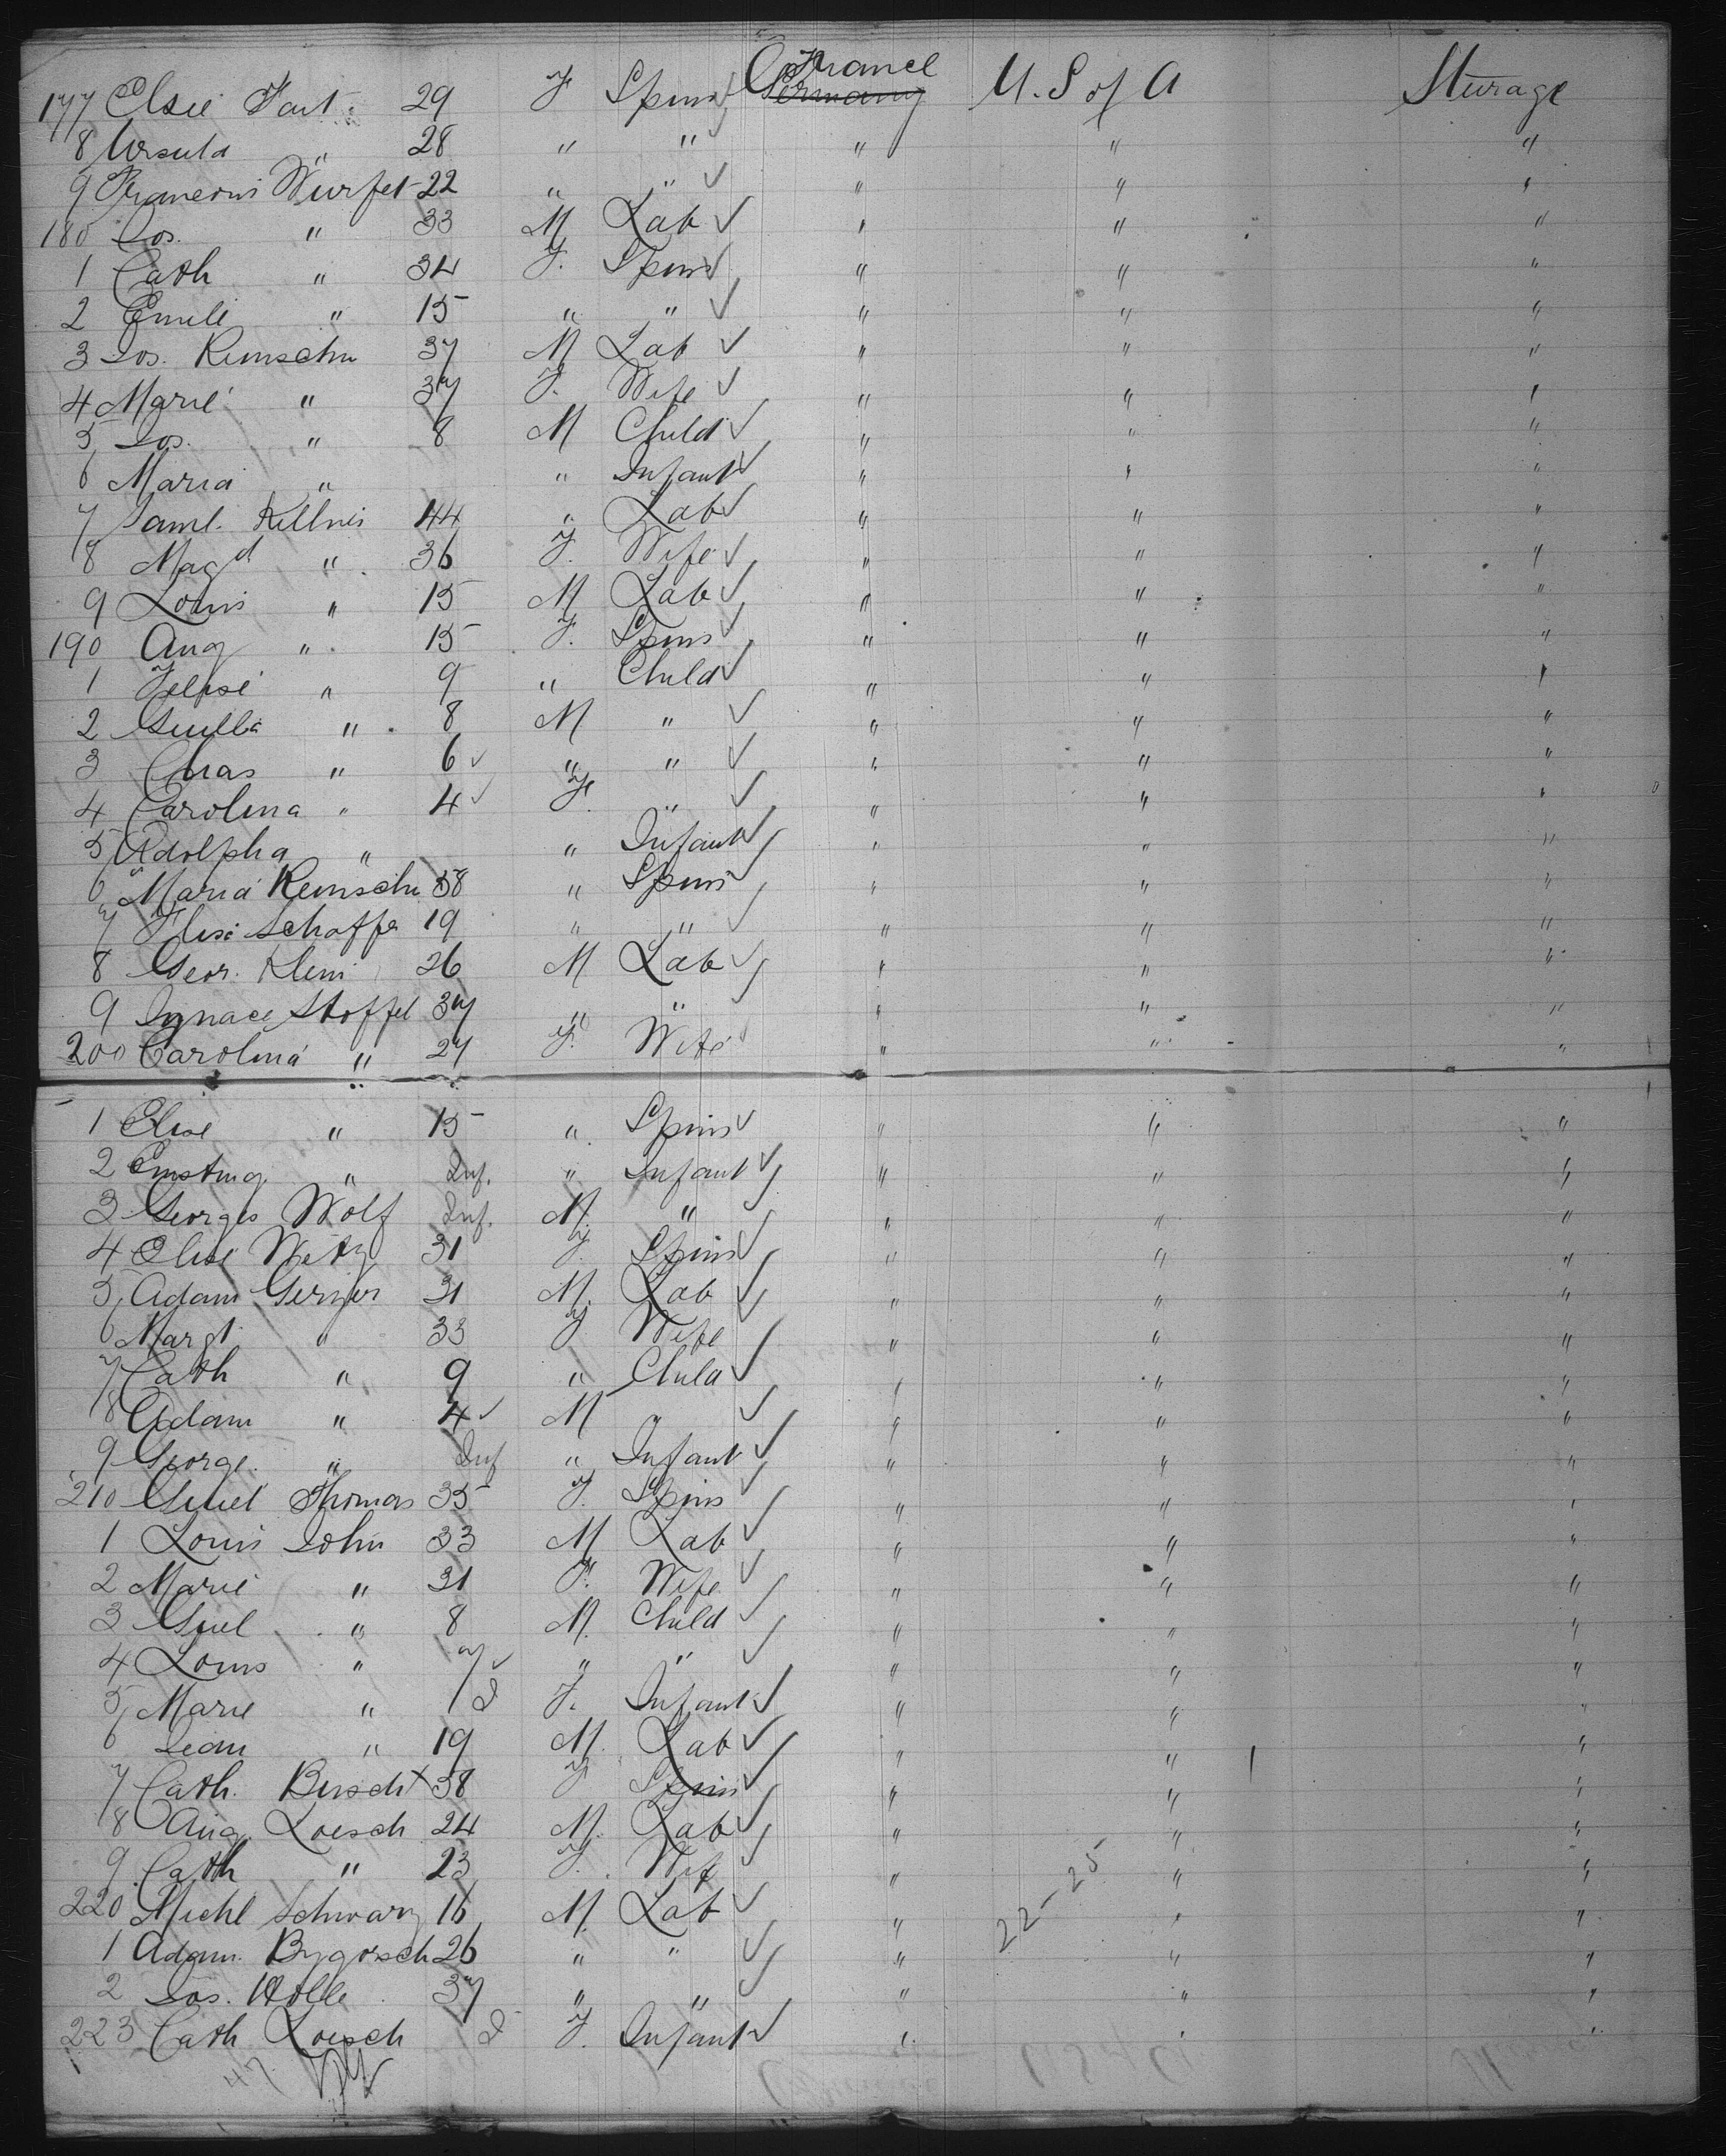 177 Elsie Fart. 29 F Spins France Germany U. S of A Sturage
8 Ursula " 28 " " " " "
9 Wurfel 22 " " " " "
180 Jos. " 33 M Lab " " "
1 Cath " 34 F. Spins " " "
2 Emile " 15 " " " " "
3 Jos. Remschn 37 M Lab " " "
4 Marie " 37 F. Wife " " "
5 Jos. " 8 M Child " " "
6 Maria " " Infant " " "
7 Saml. Kellner 44 " Lab " " "
8 Magd " 36 F. Wife " " "
9 Louis " 15 M Lab " " "
190 Aug " 15 F. Spins " " "
1 " 9 " Child " " "
2 " 8 M " " " "
3 Chas " 6 " " " " "
4 Carolina " 4 F. " " " "
5 Adolpha " " Infant " " "
6 Maria Remschn 38 " Spins " " "
7 Schaffe 19 " " " " "
8 Geor. Klein 26 M Lab " " "
9 Ignace Stoffel 37 " " " " "
200 Carolina " 27 F. Wife " " "
1 Elise " 15 " Spins " " "
2 " Inf. " Infant " " "
3 Georges Wolf Inf. M. " " " "
4 Elise Wetz 31 F Spins " " "
5 Adam Gerger 31 M. Lab " " "
6 Margt " 33 F Wife " " "
7 Cath " 9 " Child " " "
8 Adam " 4 M " " " "
9 George " Inf " Infant " " "
210 Thomas 35 F. Spins " " "
1 Louis John 33 M Lab " " "
2 Marie " 31 F. Wife " " "
3 Guel " 8 M. Child " " "
4 Louis " 7 " " " " "
5 Marie " F. Infant " " "
6 Jean " 19 M. Lab " " "
7 Cath. Buscht 38 F Spins " " "
8 Aug. Loesch 24 M. Lab " " "
9 Cath " 23 F. Wife " " "
220 Michl Schwarz 16 M. Lab " " "
1 Adam. Bygosch 26 " " " 22-25 " "
2 Jos. Holle 37 " " " " "
223 Cath Loesch F. Infant " " "
47